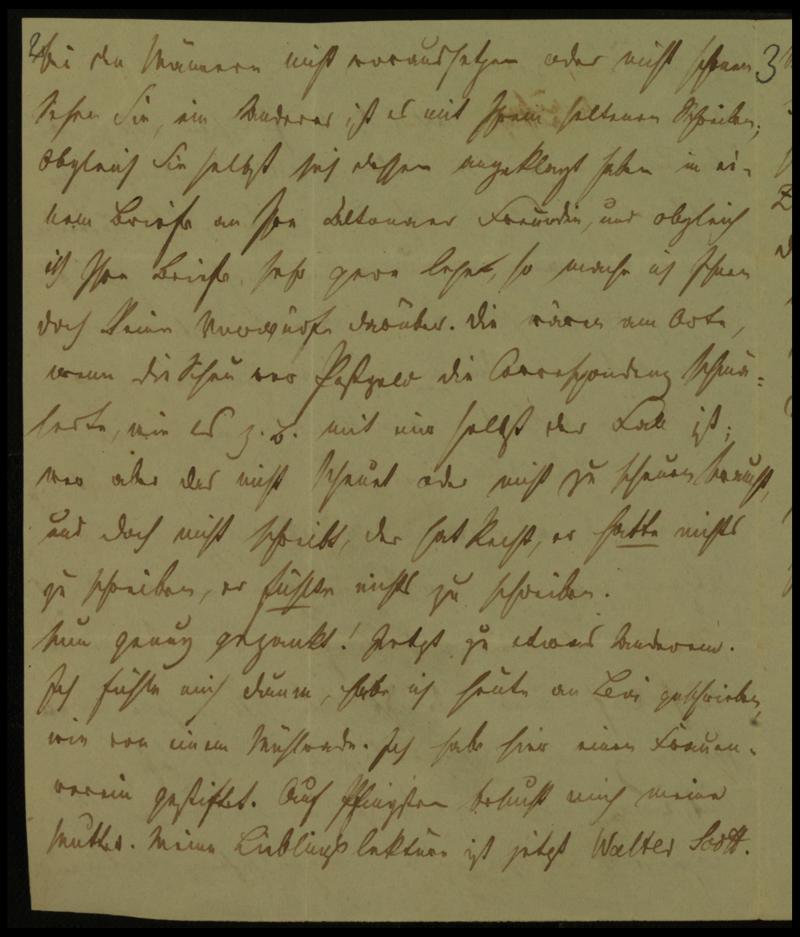 2
3
bei den Männern nicht voraussetzen oder nicht schonen
Sehen Sie, ein Anderes ist es mit Ihrem seltenen Schreiben;
Obgleich Sie selbst sich dessen angeklagt haben in ei-
nem Briefe an Ihre Altonaer Freundin, und obgleich
ich Ihre Briefe sehr gern lese, so mache ich Ihnen
doch keine Vorwürfe darüber. Die wären am Orte,
wenn die Scheu vor Postgeld die Correspondenz schmä-
lerte, wie es z. B. mit mir selbst der Fall ist;
wer aber das nicht scheuet oder nicht zu scheuen braucht,
und doch nicht schreibt, der hat Recht, er hatte nichts
zu schreiben, er fühlte nichts zu schreiben.
Nun genug gezankt! Jetzt zu etwas Anderem.
Ich fühle mich dumm, habe ich heute an Levi geschrieben,
wie von einem Mühlrade. Ich habe hier einen Frauen-
verein gestiftet. Auf Pfingsten besucht mich meine
Mutter. Meine Lieblingslektüre ist jetzt Walter Scott.